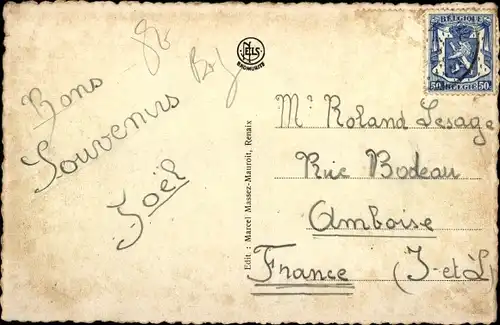 Bons
Souvenirs
Joël
NELS
BROMURITE
Edit : Marcel Massez-Mauroit, Renaix
BELGIQUE
50 BELGIË 50
Mr Roland Lesage
Rue Bodeau
Amboise
France (I-et-L